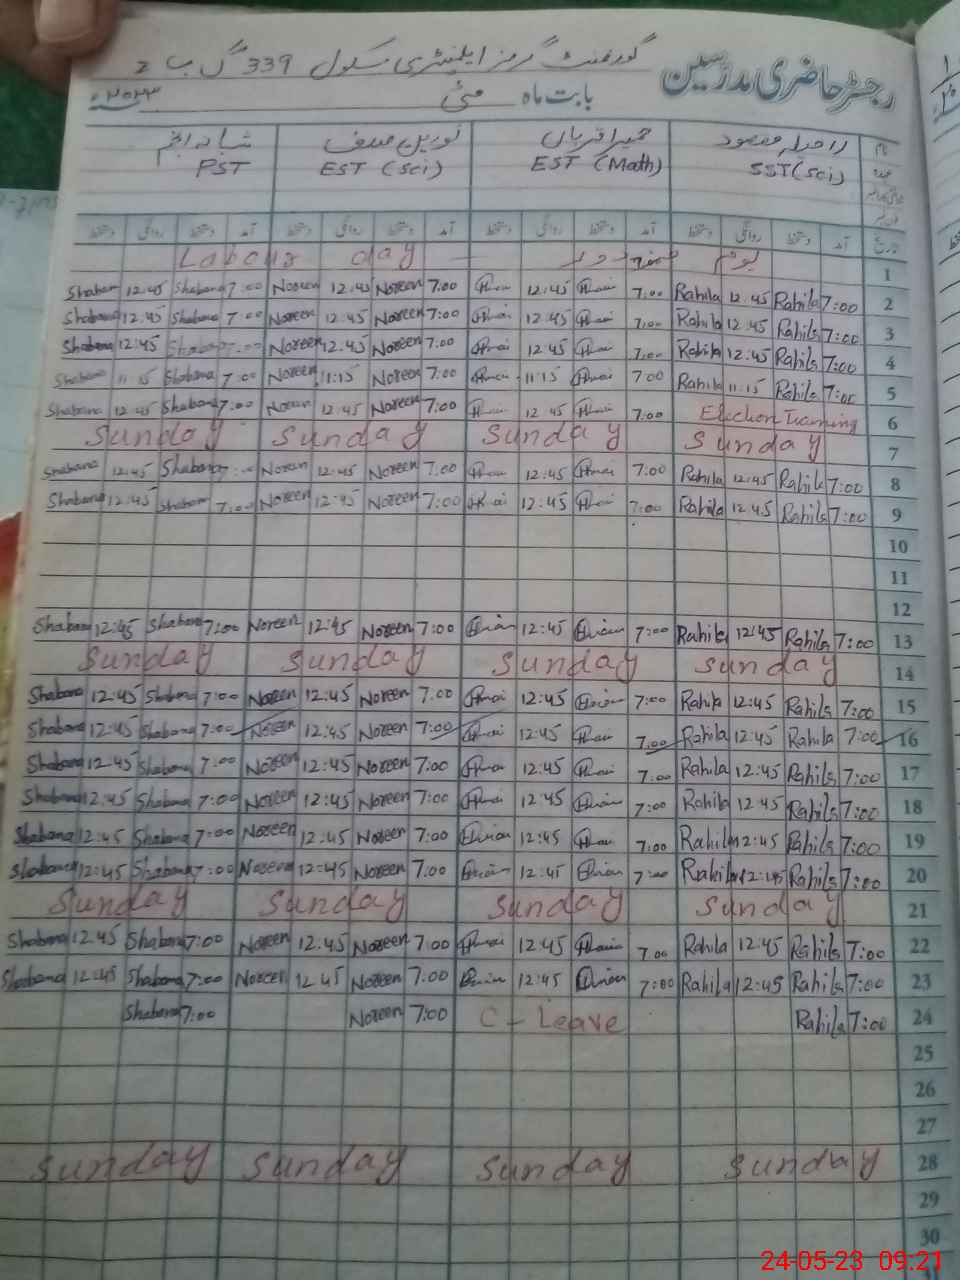 رجسٹر حاضری مدرسین
گورنمنٹ گرلز ایلیمنٹری سکول 339 گ ب 2
بابت ماہ مئی ۲۰۲۳ء
نام
راحیلہ مقصود حمیرا قربان نورین شبانہ انجم
عہدہ SST (Sci) EST (Math) EST (Sci) PST
تاریخ آمد دستخط روانگی دستخط آمد دستخط روانگی دستخط آمد دستخط روانگی دستخط آمد دستخط روانگی دستخط
Labour day یوم مزدور 1
Shabana 12:45 Shabana 7:00 Noreen 12:45 Noreen 7:00 12:45 7:00 Rahila 12:45 Rahila 7:00 2
Shabana 12:45 Shabana 7:00 Noreen 12:45 Noreen 7:00 12:45 7:00 Rahila 12:45 Rahila 7:00 3
Shabana 12:45 Shabana 7:00 Noreen 12:45 Noreen 7:00 12:45 7:00 Rahila 12:45 Rahila 7:00 4
Shabana 11:15 Shabana 7:00 Noreen 11:15 Noreen 7:00 11:15 7:00 Rahila 11:15 Rahila 7:00 5
Shabana 12:45 Shabana 7:00 Noreen 12:45 Noreen 7:00 12:45 7:00 Election Training 6
Sunday Sunday Sunday Sunday 7
Shabana 12:45 Shabana 7:00 Noreen 12:45 Noreen 7:00 12:45 7:00 Rahila 12:45 Rahila 7:00 8
Shabana 12:45 Shabana 7:00 Noreen 12:45 Noreen 7:00 12:45 7:00 Rahila 12:45 Rahila 7:00 9
10
11
12
Shabana 12:45 Shabana 7:00 Noreen 12:45 Noreen 7:00 12:45 7:00 Rahila 12:45 Rahila 7:00 13
Sunday Sunday Sunday Sunday 14
Shabana 12:45 Shabana 7:00 Noreen 12:45 Noreen 7:00 12:45 7:00 Rahila 12:45 Rahila 7:00 15
Shabana 12:45 Shabana 7:00 Noreen 12:45 Noreen 7:00 12:45 7:00 Rahila 12:45 Rahila 7:00 16
Shabana 12:45 Shabana 7:00 Noreen 12:45 Noreen 7:00 12:45 7:00 Rahila 12:45 Rahila 7:00 17
Shabana 12:45 Shabana 7:00 Noreen 12:45 Noreen 7:00 12:45 7:00 Rahila 12:45 Rahila 7:00 18
Shabana 12:45 Shabana 7:00 Noreen 12:45 Noreen 7:00 12:45 7:00 Rahila 12:45 Rahila 7:00 19
Shabana 12:45 Shabana 7:00 Noreen 12:45 Noreen 7:00 12:45 7:00 Rahila 12:45 Rahila 7:00 20
Sunday Sunday Sunday Sunday 21
Shabana 12:45 Shabana 7:00 Noreen 12:45 Noreen 7:00 12:45 7:00 Rahila 12:45 Rahila 7:00 22
Shabana 12:45 Shabana 7:00 Noreen 12:45 Noreen 7:00 12:45 7:00 Rahila 12:45 Rahila 7:00 23
Shabana 7:00 Noreen 7:00 C - Leave Rahila 7:00 24
25
26
27
Sunday Sunday Sunday Sunday 28
29
30
24-05-23 09:21